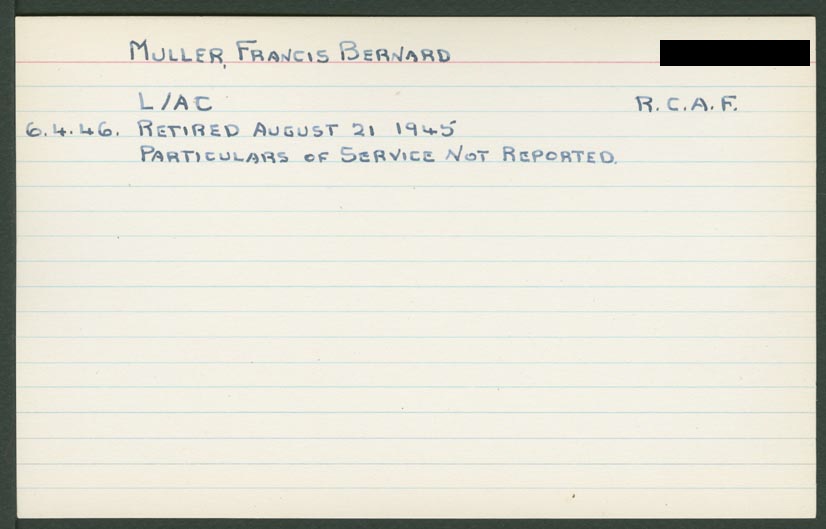 MULLER, FRANCIS BERNARD
L/AC R.C.A.F.
6.4.46. RETIRED AUGUST 21 1945
PARTICULARS OF SERVICE NOT REPORTED.